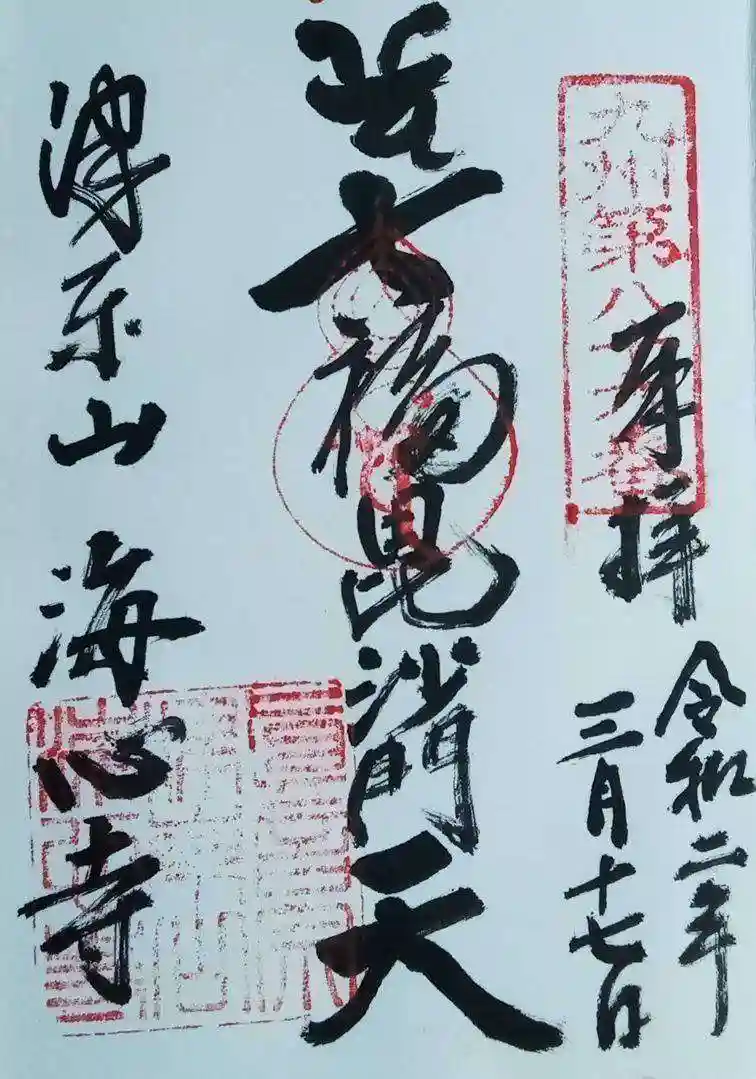 九州第八
奉拝
令和二年
三月十七日
大福毘沙門天
津東山 海心寺